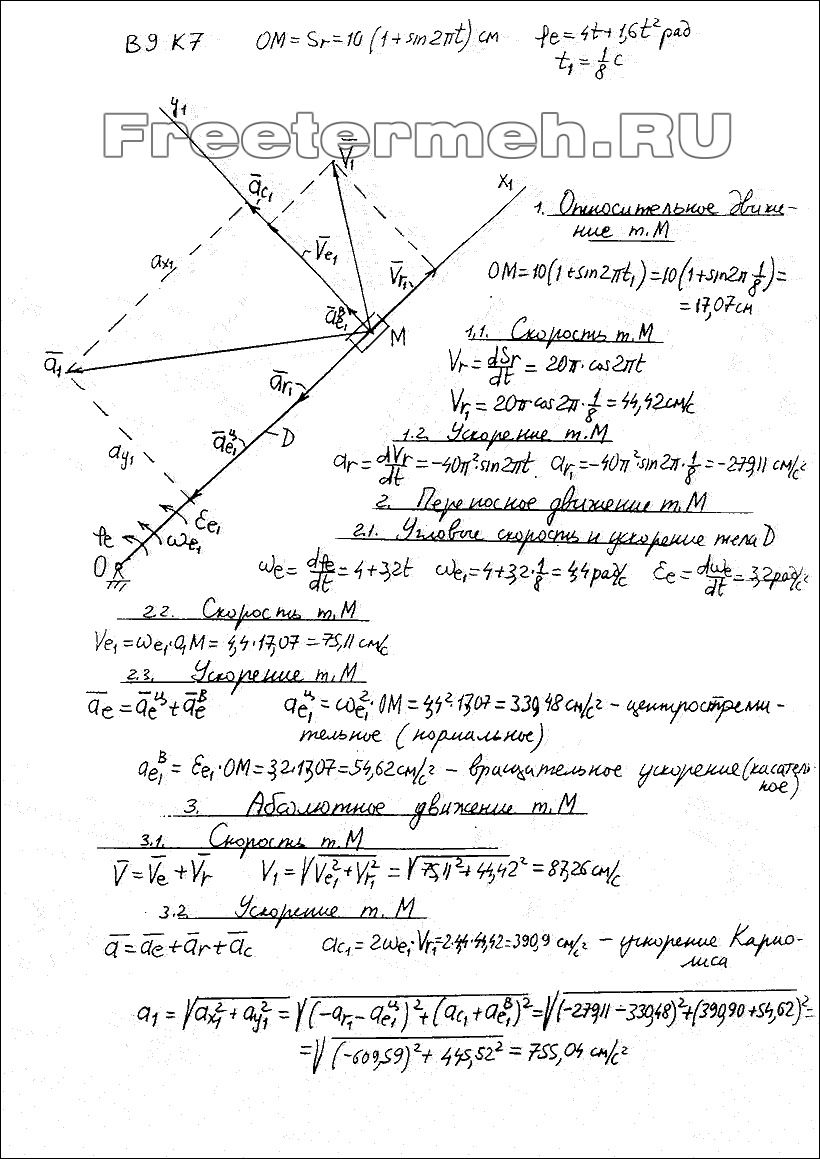 В9 К7 OM = Sr = 10 (1 + sin2πt) см φe = 4t + 1,6t² рад
t₁ = 1/8 с
Freetermeh.RU
y₁
V̄₁
āc₁
x₁
V̄e₁
ax₁
V̄r₁
āᴮe₁
M
ā₁
ār₁
āᶣe₁
D
ay₁
εe₁
φe
ωe₁
O
1. Относительное движе-
ние т.М
OM = 10(1 + sin2πt₁) = 10(1 + sin2π 1/8) =
= 17,07 см
1.1. Скорость т.М
Vr = dSr/dt = 20π·cos2πt
Vr₁ = 20π cos2π·1/8 = 44,42 см/с
1.2. Ускорение т.М
ar = dVr/dt = -40π²·sin2πt. ar₁ = -40π²·sin2π·1/8 = -279,11 см/с²
2. Переносное движение т.М
2.1. Угловые скорость и ускорение тела D
ωe = dφe/dt = 4 + 3,2t ωe₁ = 4 + 3,2·1/8 = 4,4 рад/с εe = dωe/dt = 3,2 рад/с²
2.2. Скорость т.М
Ve₁ = ωe₁·O₁M = 4,4·17,07 = 75,11 см/с
2.3. Ускорение т.М
āe = āeᶣ + āeᴮ ae₁ᶣ = ωe₁²·OM = 4,4²·17,07 = 330,48 см/с² – центростреми-
тельное (нормальное)
ae₁ᴮ = εe₁·OM = 3,2·17,07 = 54,62 см/с² – вращательное ускорение (касатель-
ное)
3. Абсолютное движение т.М
3.1. Скорость т.М
V̄ = V̄e + V̄r V₁ = √(Ve₁² + Vr₁²) = √(75,11² + 44,42²) = 87,26 см/с
3.2. Ускорение т.М
ā = āe + ār + āc ac₁ = 2ωe₁·Vr₁ = 2·4,4·44,42 = 390,9 см/с² – ускорение Карио-
лиса
a₁ = √(ax₁² + ay₁²) = √((-ar₁ - ae₁ᶣ)² + (ac₁ + ae₁ᴮ)²) = √((-279,11 - 330,48)² + (390,90 + 54,62)²) =
= √((-609,59)² + 445,52²) = 755,04 см/с²